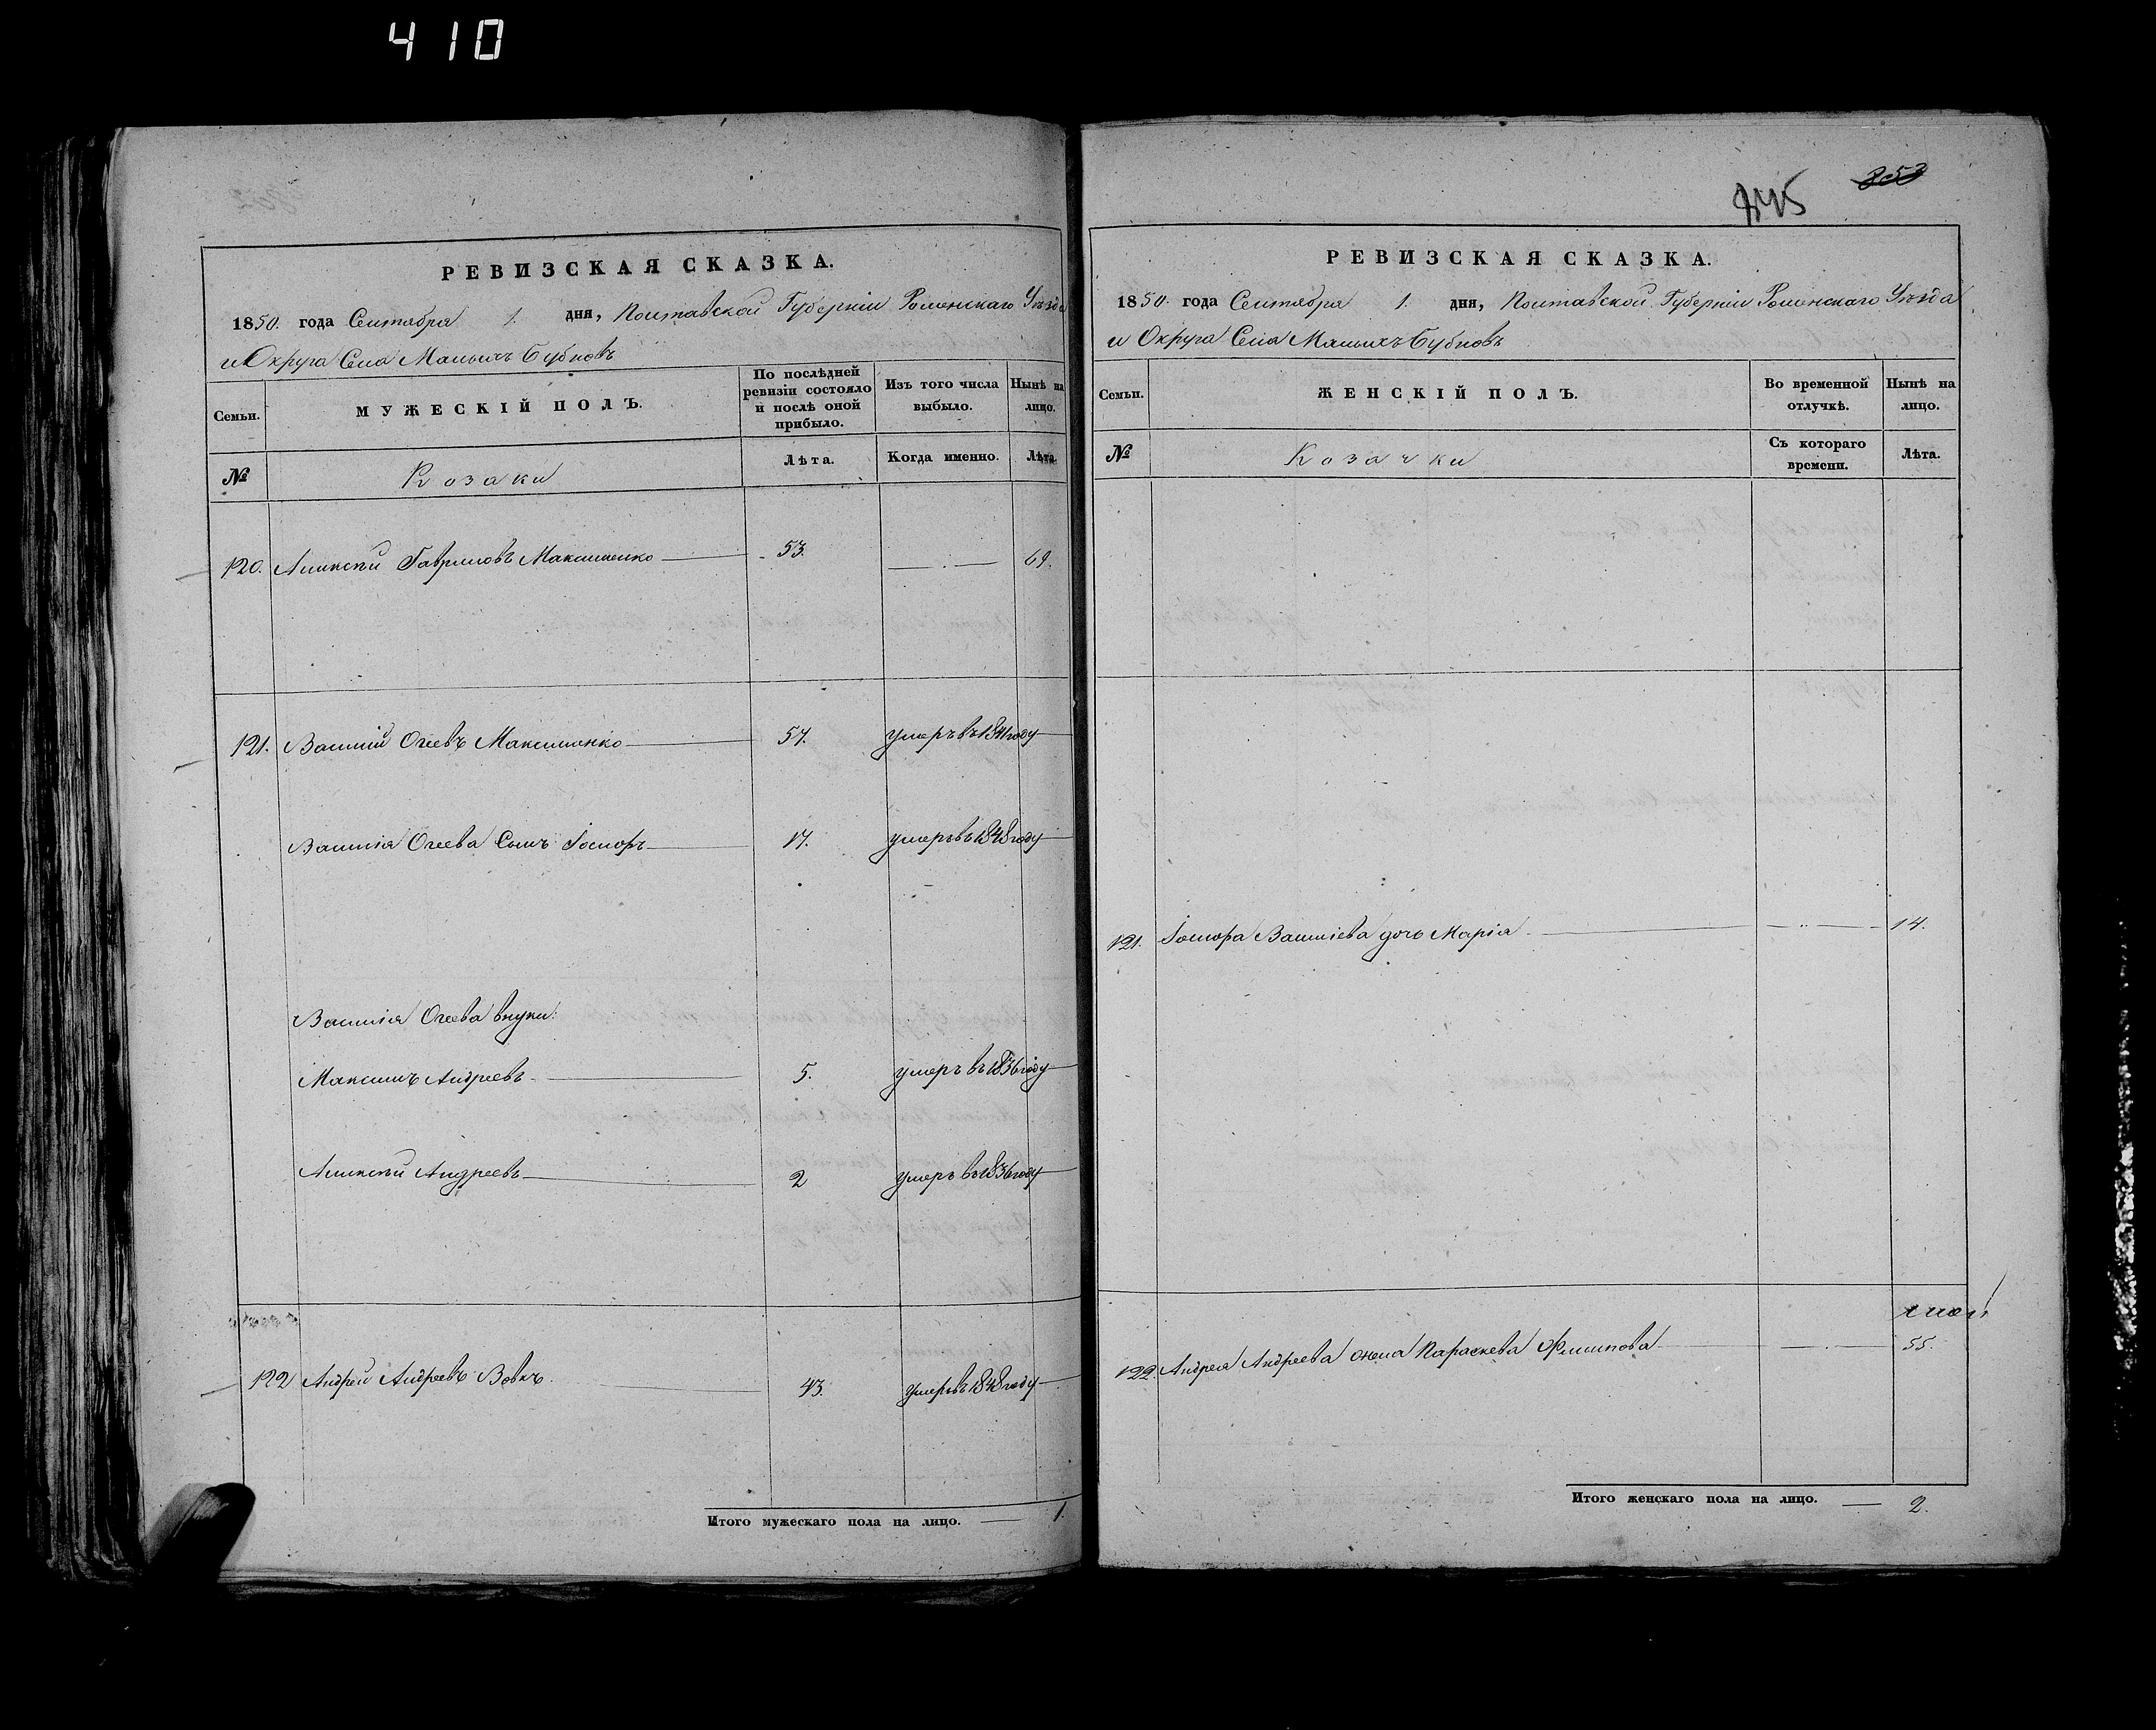 410
РЕВИЗСКАЯ СКАЗКА.
1850. года Сентября 1. дня, Полтавской Губерніи Роменскаго Уѣзда
и Округа Села Малыхъ Бубновъ
Семьи. МУЖЕСКІЙ ПОЛЪ. По послѣдней ревизіи состояло и послѣ оной прибыло. Изъ того числа выбыло. Нынѣ на лицо.
№ Козаки Лѣта. Когда именно. Лѣта.
120. Алексѣй Гавриловъ Максименко 53. 69.
121. Василій Огеевъ Максименко 57. умеръ въ 1841 году
Василія Огеева Сынъ 17. умеръ въ 1848 году
Василія Огеева внуки:
Максимъ Андреевъ 5. умеръ въ 1836 году
Алексѣй Андреевъ 2 умеръ въ 1836 году
122 Андрей Андреевъ Вовкъ 43. умеръ въ 1848 году
Итого мужескаго пола на лицо. 1.
853
845
РЕВИЗСКАЯ СКАЗКА.
1850. года Сентября 1. дня, Полтавской Губерніи Роменскаго Уѣзда
и Округа Села Малыхъ Бубновъ
Семьи. ЖЕНСКІЙ ПОЛЪ. Во временной отлучкѣ. Нынѣ на лицо.
№ Козачки Съ котораго времени. Лѣта.
121. Василіева дочь Марія 14.
122. Андрея Андреева жена Параскева Филипова 55.
Итого женскаго пола на лицо. 2.